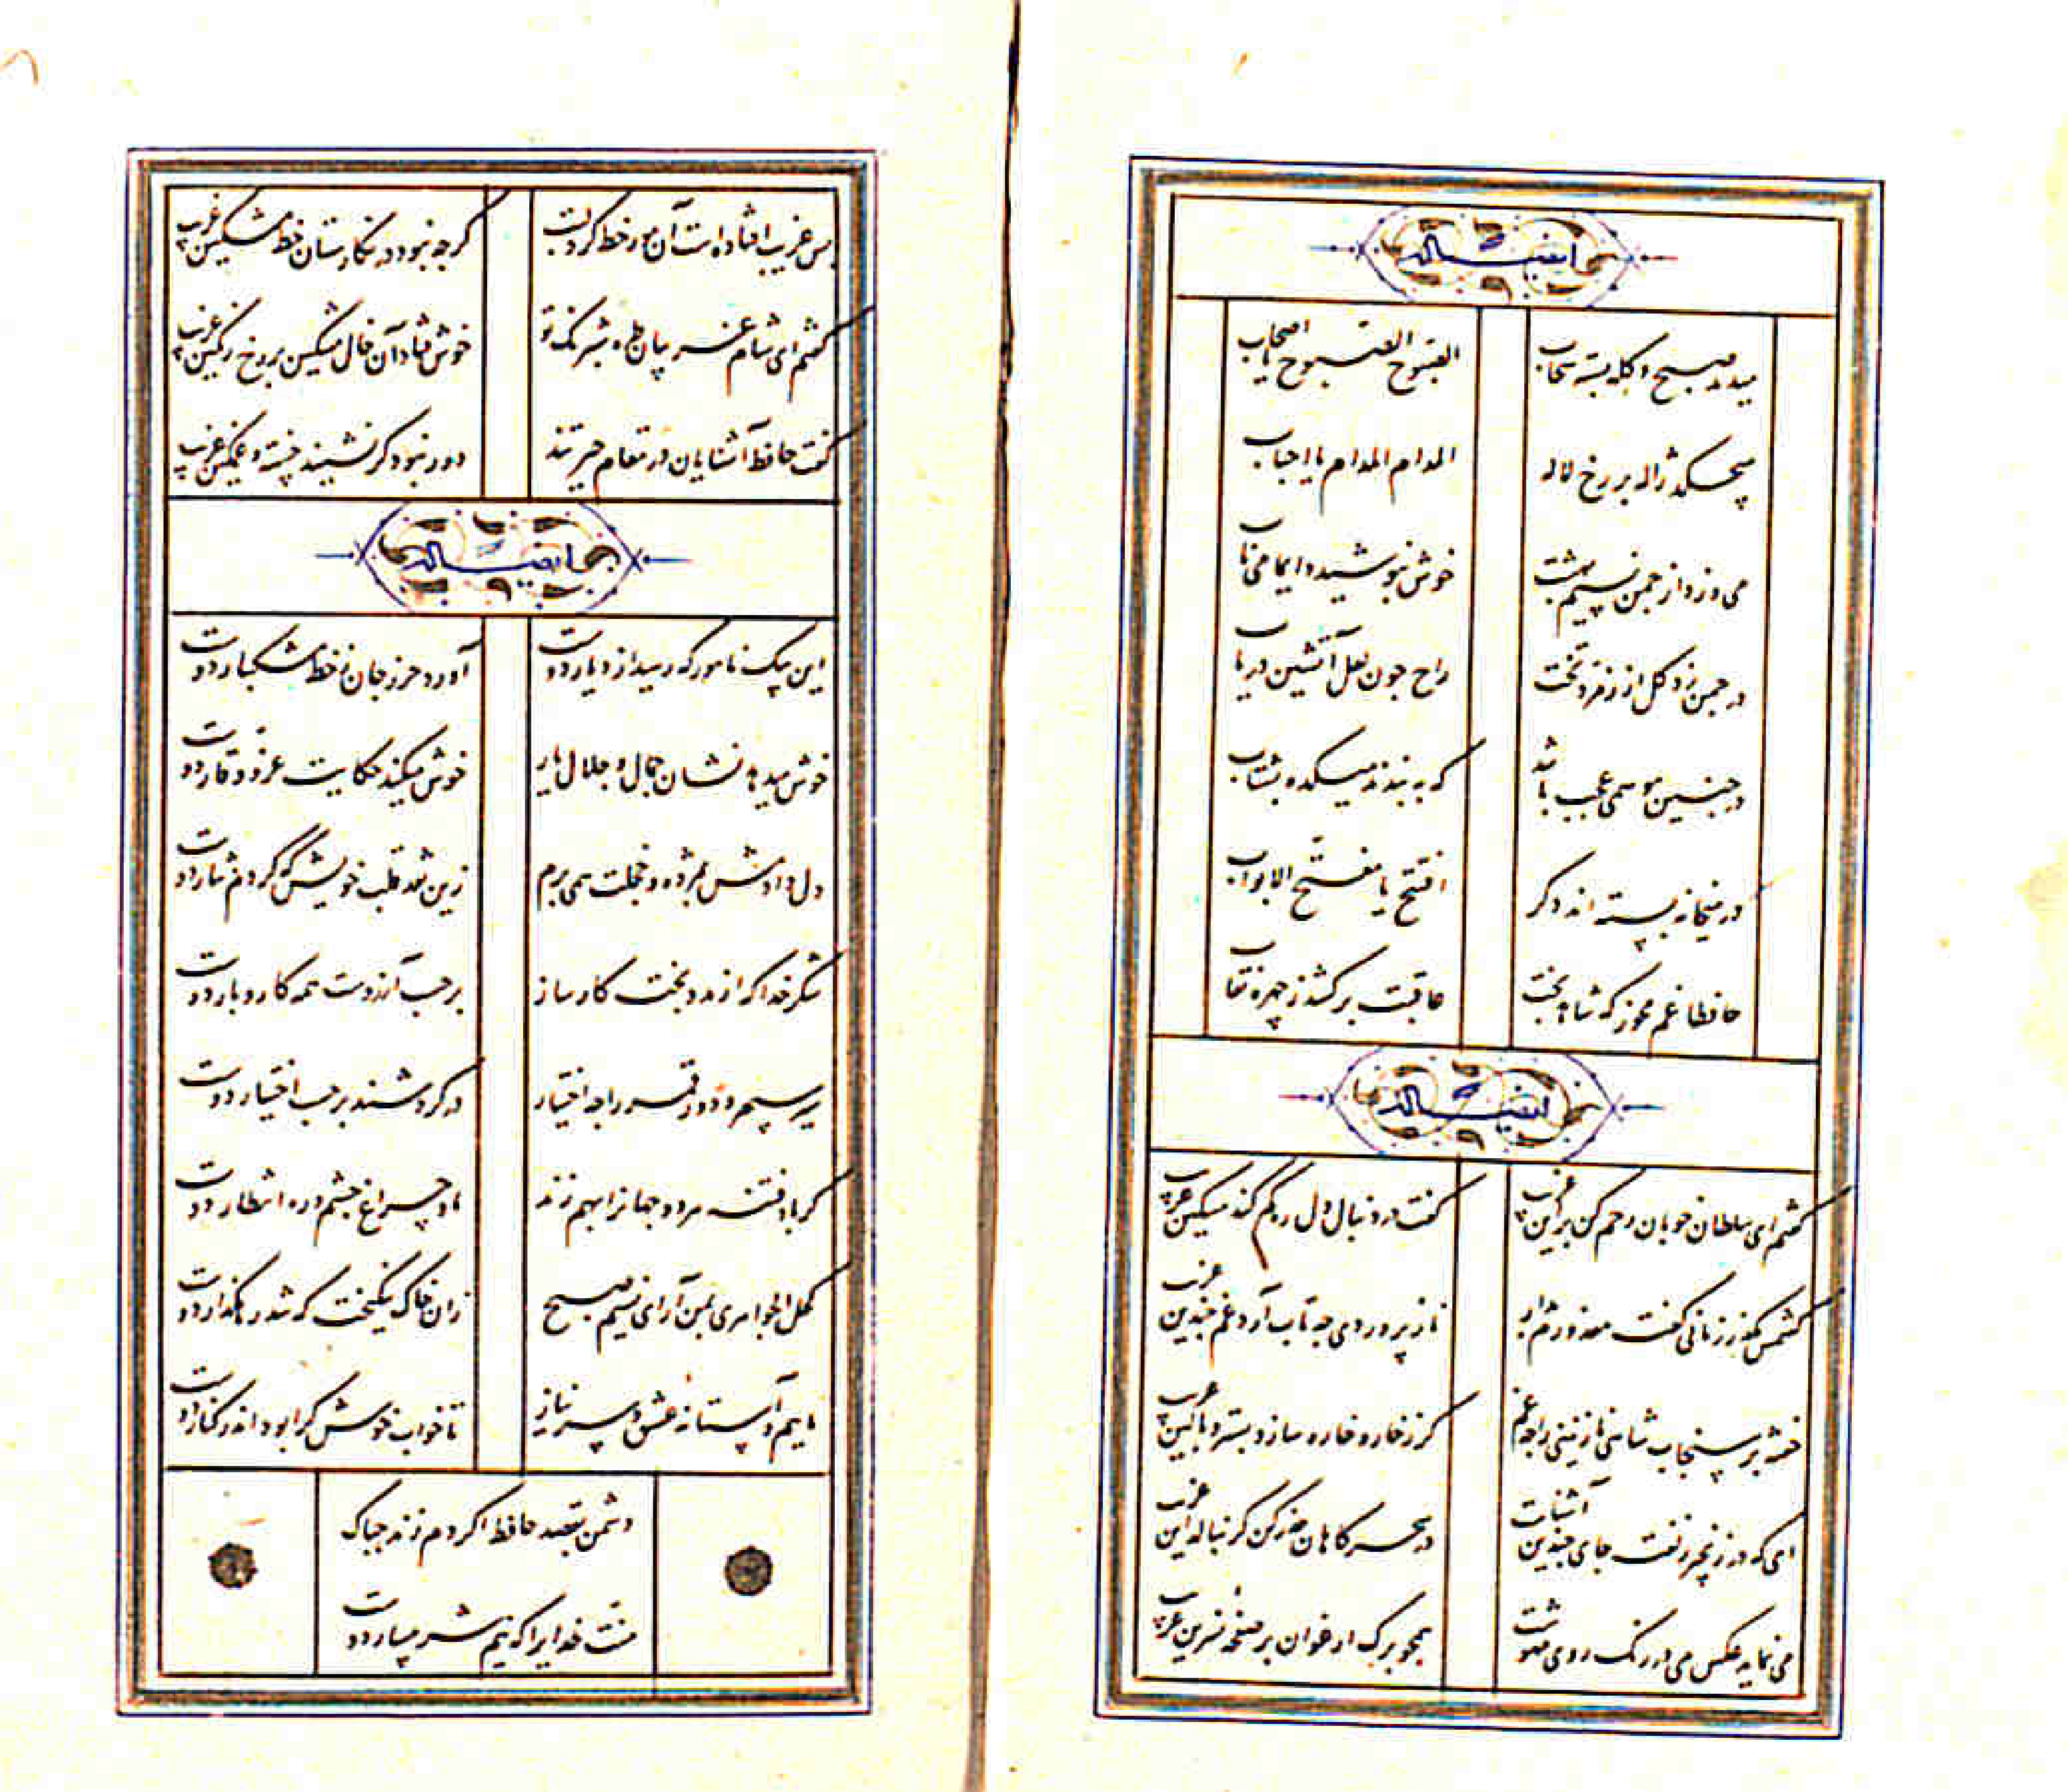 ایضا له
میدمد صبح و کله بسته سحاب
الصبوح الصبوح یا اصحاب
میچکد ژاله بر رخ لاله
المدام المدام یا احباب
می وزد از چمن نسیم بهشت
خوش بنوشید دایما می ناب
در چمن زد گل از زمرد تخت
راح چون لعل آتشین دریاب
در چنین موسمی عجب باشد
که به بندند میکده بشتاب
در میخانه بسته اند دکر
افتتح یا مفتح الابواب
حافظا غم مخور که شاهد بخت
عاقبت برکشد ز چهره نقاب
ایضا له
کفتم ای سلطان خوبان رحم کن بر این غریب
کفت در دنبال دل ره کم کند مسکین غریب
کفتمش مکذر زمانی کفت معذورم بدار
ناز پروردی چه تاب آرد غم چندین غریب
خفته بر سنجاب شاهی نازنینی را چه غم
کر ز خار و خاره سازد بستر و بالین غریب
ای که در زنجیر زلفت جای چندین آشناست
در سحرکاهان حذر کن کر بنالد این غریب
می نماید عکس می در رنک روی مهوشت
همچو برک ارغوان بر صفحهٔ نسرین غریب
بس غریب افتاده است آن مور خط کرد لبت
کرچه نبود در نکارستان خط مشکین غریب
کفتم ای شام غریبان طره شبرنک تو
خوش فتاد آن خال مشکین بر رخ رنکین غریب
کفت حافظ آشنایان در مقام حیرتند
دور نبود کر نشیند خسته و غمکین غریب
ایضا له
این پیک نامور که رسید از دیار دوست
آورد حرز جان ز خط مشکبار دوست
خوش میدهد نشان جمال و جلال یار
خوش میکند حکایت عز و وقار دوست
دل دادمش بمژده و خجلت همی برم
زین نقد قلب خویش که کردم نثار دوست
شکر خدا که از مدد بخت کارساز
بر حسب آرزوست همه کار و بار دوست
سیر سپهر و دور قمر را چه اختیار
در کردشند بر حسب اختیار دوست
کر باد فتنه هر دو جهانرا بهم زند
ما و چراغ چشم و ره انتظار دوست
کحل الجواهری بمن آر ای نسیم صبح
زان خاک نیکبخت که شد رهکذار دوست
مائیم و آستانه عشق و سر نیاز
تا خواب خوش کرا بود اندر کنار دوست
دشمن بقصد حافظ اکر دم زند چه باک
منت خدایرا که نیم شرمسار دوست